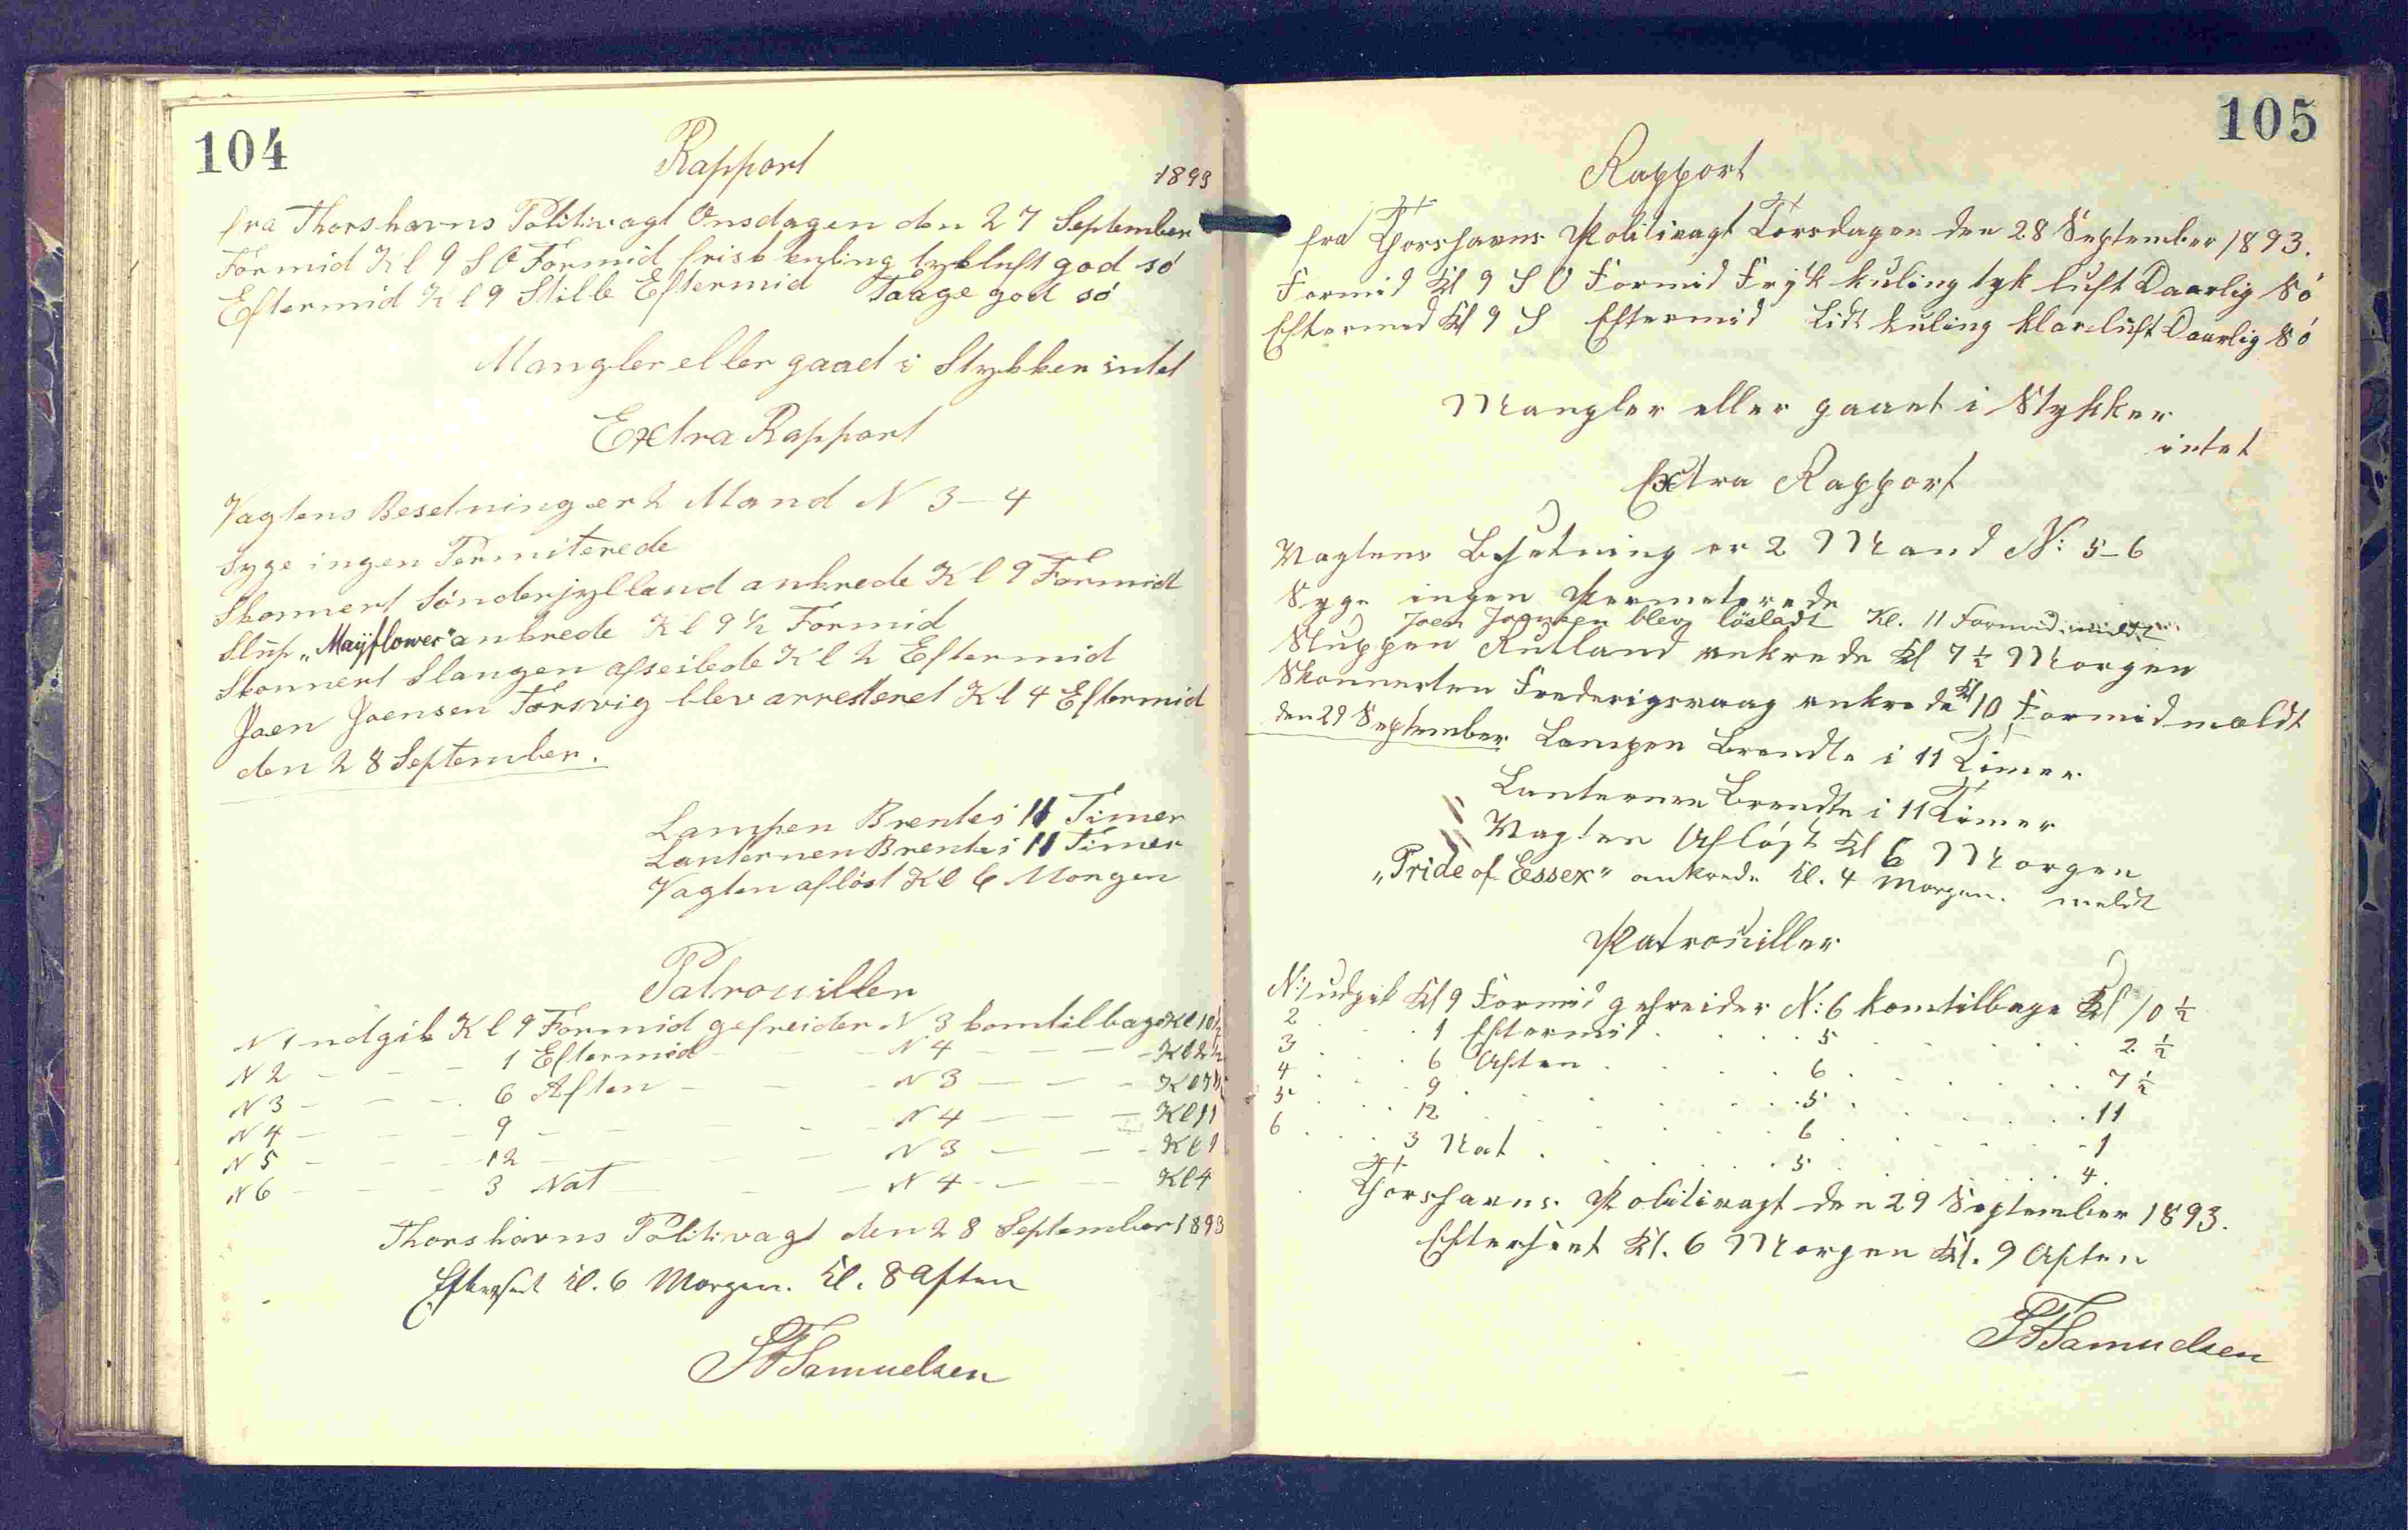 104
Rapport
1893
fra Thorshavns Politivagt Onsdagen den 27 September
Formid Kl 9 S O Formid frisk kuling tykluft god sö
Eftermid Kl 9 Stille Eftermid Taage god sö
Mangler eller gaaet i Stykker intet
Extra Rapport
Vagtens Besetning er 2 Mand N 3-4
Syge ingen Permiterede
Skonnert Sönderjylland ankrede Kl 9 Formid
Slup „Mayflower" ankrede Kl 9 ½ Formid
Skonnert Slangen afseilede Kl 2 Eftermid
Joen Joensen Torsvig blev arresteret Kl 4 Eftermid
den 28 September.
Lampen Brente i 11 Timer
Lanternen Brente i 11 Timer
Vagten aflöst Kl 6 Morgen
Patrouiller
N 1 udgik Kl 9 Formid gefreider N 3 kom tilbage Kl 10 ½
N 2 - - - 1 Eftermid - - N 4 - - - Kl 2 ½
N 3 - - - 6 Aften - - - N 3 - - - Kl 7 ½
N 4 - - - 9 - - - N 4 - - - Kl 11
N 5 - - - 12 - - - N 3 - - - Kl 1
N 6 - - - 3 Nat - - - N 4 - - - Kl 4
Thorshavns Politivagt den 28 September 1893
Efterset Kl. 6 Morgen. Kl. 8 Aften
Samuelsen
105
Rapport
fra Thorshavns Politivagt Torsdagen den 28 September 1893.
Formid Kl 9 S O Formid Frisk kuling tyk luft Daarlig Sö
Eftermed Kl 9 S Eftermid Lidt kuling klar luft Daarlig Sö
Mangler eller gaaet i Stykker
intet
Extra Rapport
Vagtens Besetning er 2 Mand N: 5-6
Syge ingen Permeterede
Joen Joensen blev lösladt Kl. 11 Formid
Sluppen Rutland ankrede Kl 7 ½ Morgen
Skonnerten Frederigsvaag ankrede Kl 10 Formid meldt
den 29 September Lampen Brendte i 11 Timer
Lanternen Brendte i 11 Timer
Vagten Aflöst Kl 6 Morgen
„Pride of Essex" ankrede Kl. 4 Morgen. meldt
Patrouiller
N: 1 udgik Kl 9 Formid gefreider N: 6 kom tilbage Kl 10 ½
2 . . . 1 Eftermid . . . 5 . . . 2 ½
3 . . . 6 Aften . . . 6 . . . 7 ½
4 . . . 9 . . . 5 . . . 11
5 . . . 12 . . . 6 . . . 1
6 . . . 3 Nat . . . 5 . . . 4
Thorshavns Politivagt den 29 September 1893.
Efterseet Kl. 6 Morgen Kl. 9 Aften
Samuelsen